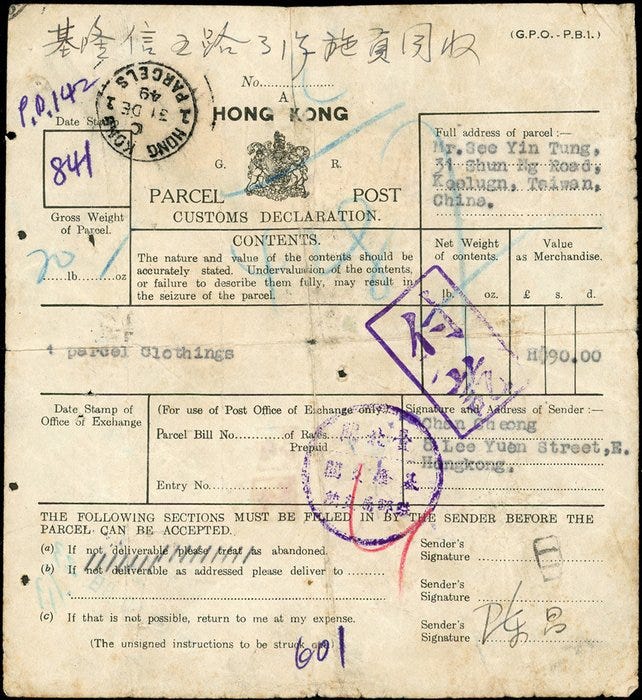 (G.P.O. - P.B.1.)
基隆信五路31
No.
A
HONG KONG
P.D.142
HONG KONG
PARCELS
31 DE
49
Date Stamp
841
G. R.
PARCEL POST
CUSTOMS DECLARATION.
Full address of parcel :—
Mr. See Yin Tung,
31 Shun Ng Road,
Koolugn, Teiwan,
China.
Gross Weight
of Parcel.
20
lb. oz
CONTENTS.
The nature and value of the contents should be
accurately stated. Undervaluation of the contents,
or failure to describe them fully, may result in
the seizure of the parcel.
Net Weight
of contents.
lb. oz.
Value
as Merchandise.
£ s. d.
1 parcel Clothings
H$90.00
Date Stamp of
Office of Exchange
(For use of Post Office of Exchange only).
Parcel Bill No. of Rates
Prepaid
Entry No.
Signature and Address of Sender :—
Chan Cheong
8 Lee Yuen Street, E.
Hongkong.
THE FOLLOWING SECTIONS MUST BE FILLED IN BY THE SENDER BEFORE THE
PARCEL CAN BE ACCEPTED.
(a) If not deliverable please treat as abandoned.
Sender's
Signature
(b) If not deliverable as addressed please deliver to
Sender's
Signature
(c) If that is not possible, return to me at my expense.
Sender's
Signature
陈昌
(The unsigned instructions to be struck out)
601